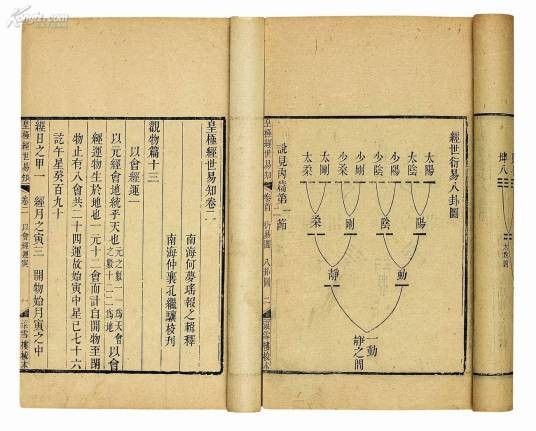 坤八
經世衍易八卦圖
太陽 太陰 少陽 少陰 少剛 少柔 太剛 太柔
陽 陰 剛 柔
動 靜
一動
靜之間
說見內篇第二節
皇極經世易知 卷首 衍易圖 八卦圖 二
皇極經世易知卷二
南海何夢瑤報之輯釋
南海仲襄孔繼驤校刊
觀物篇十三
以會經運一
以元經會地統乎天也 元之數一一為天會之數十二二為地 以會
經運物生於地也一元十二會而計自開物至閉
物止有八會共二十四運故始寅中星巳七十六
訖午星癸百九十
經日之甲一 經月之寅三 開物始月寅之中
皇極經世易知 卷二 以會經運 一
Kongfz.com